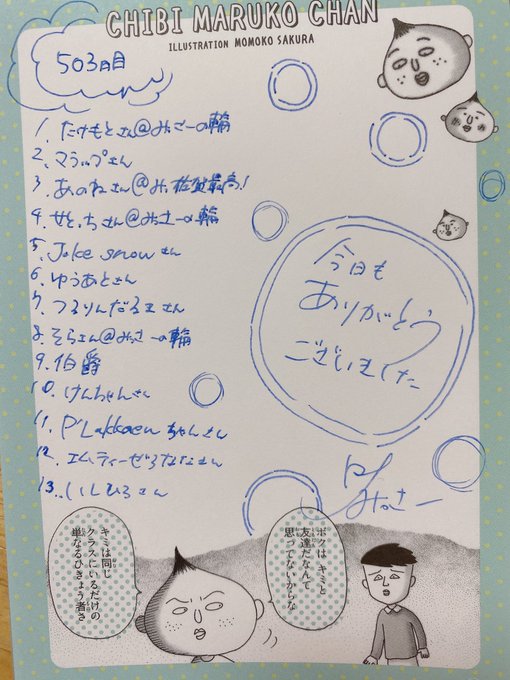 CHIBI MARUKO CHAN
ILLUSTRATION MOMOKO SAKURA
503日目
1. たけもとさん@みっさーの輪
2. マラップさん
3. あのねさん@みっ佐賀最高!
4. せとっちさん@みっさーの輪
5. Joke snowさん
6. ゆうあとさん
7. つるりんだるまさん
8. そらさん@みっさーの輪
9. 伯爵
10. けんちゃんさん
11. ちゃんさん
12. エムティーゼろななさん
13. いしひろさん
今日も
ありがとう
ございました
みっさー
ボクはキミと
友達だなんて
思ってないからな
キミは同じ
クラスにいるだけの
単なるひきょう者さ